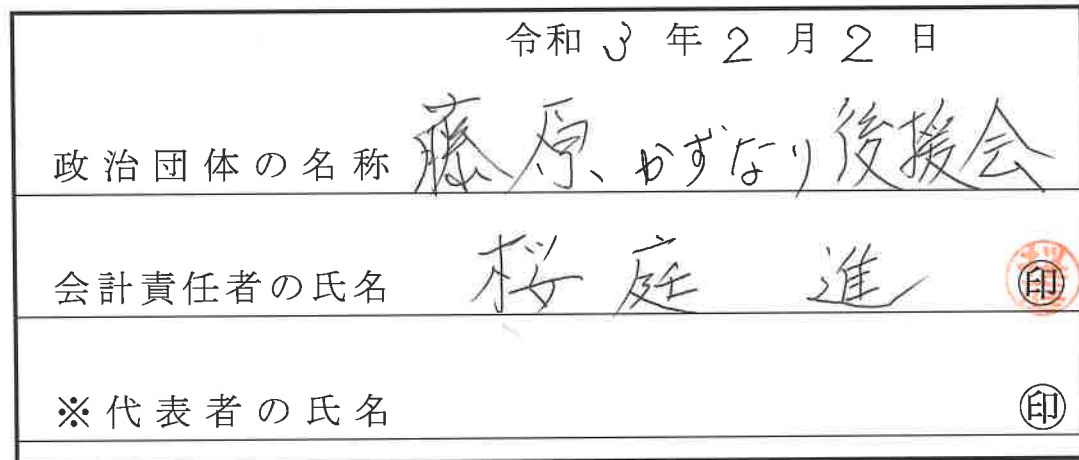 令和3年2月2日
政治団体の名称 藤原かずなり後援会
会計責任者の氏名 桜庭 進 ㊞
※代表者の氏名 ㊞